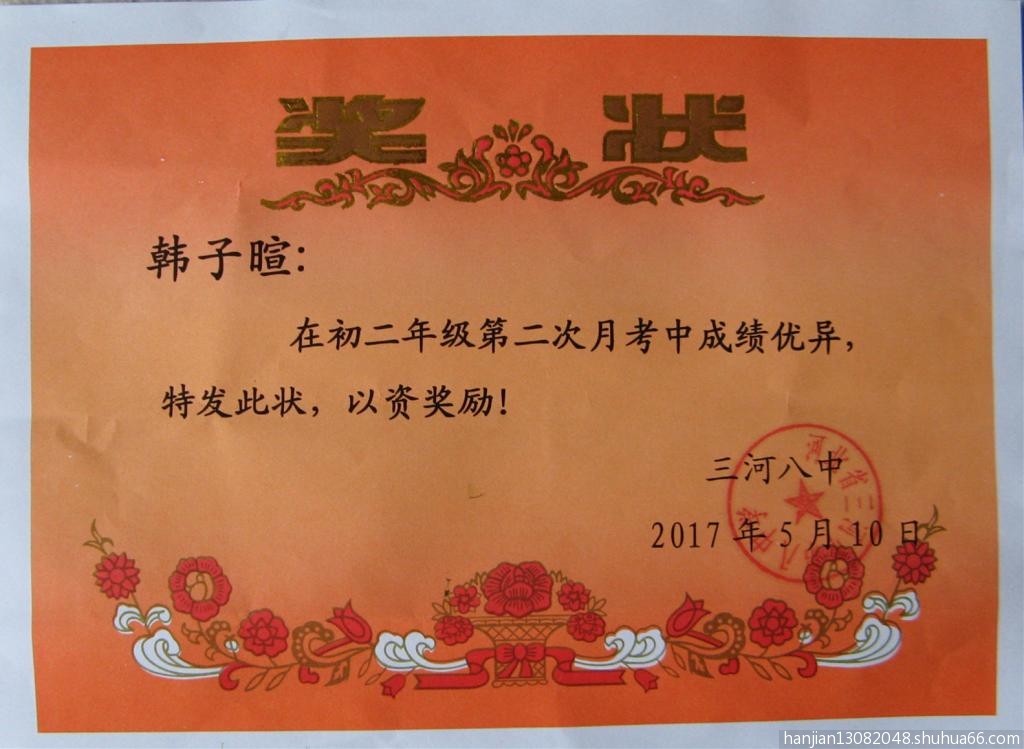 奖 状
韩子暄:
在初二年级第二次月考中成绩优异,
特发此状, 以资奖励!
三河八中
2017 年 5 月 10 日
河北省三河
八中学
hanjian13082048.shuhua66.com